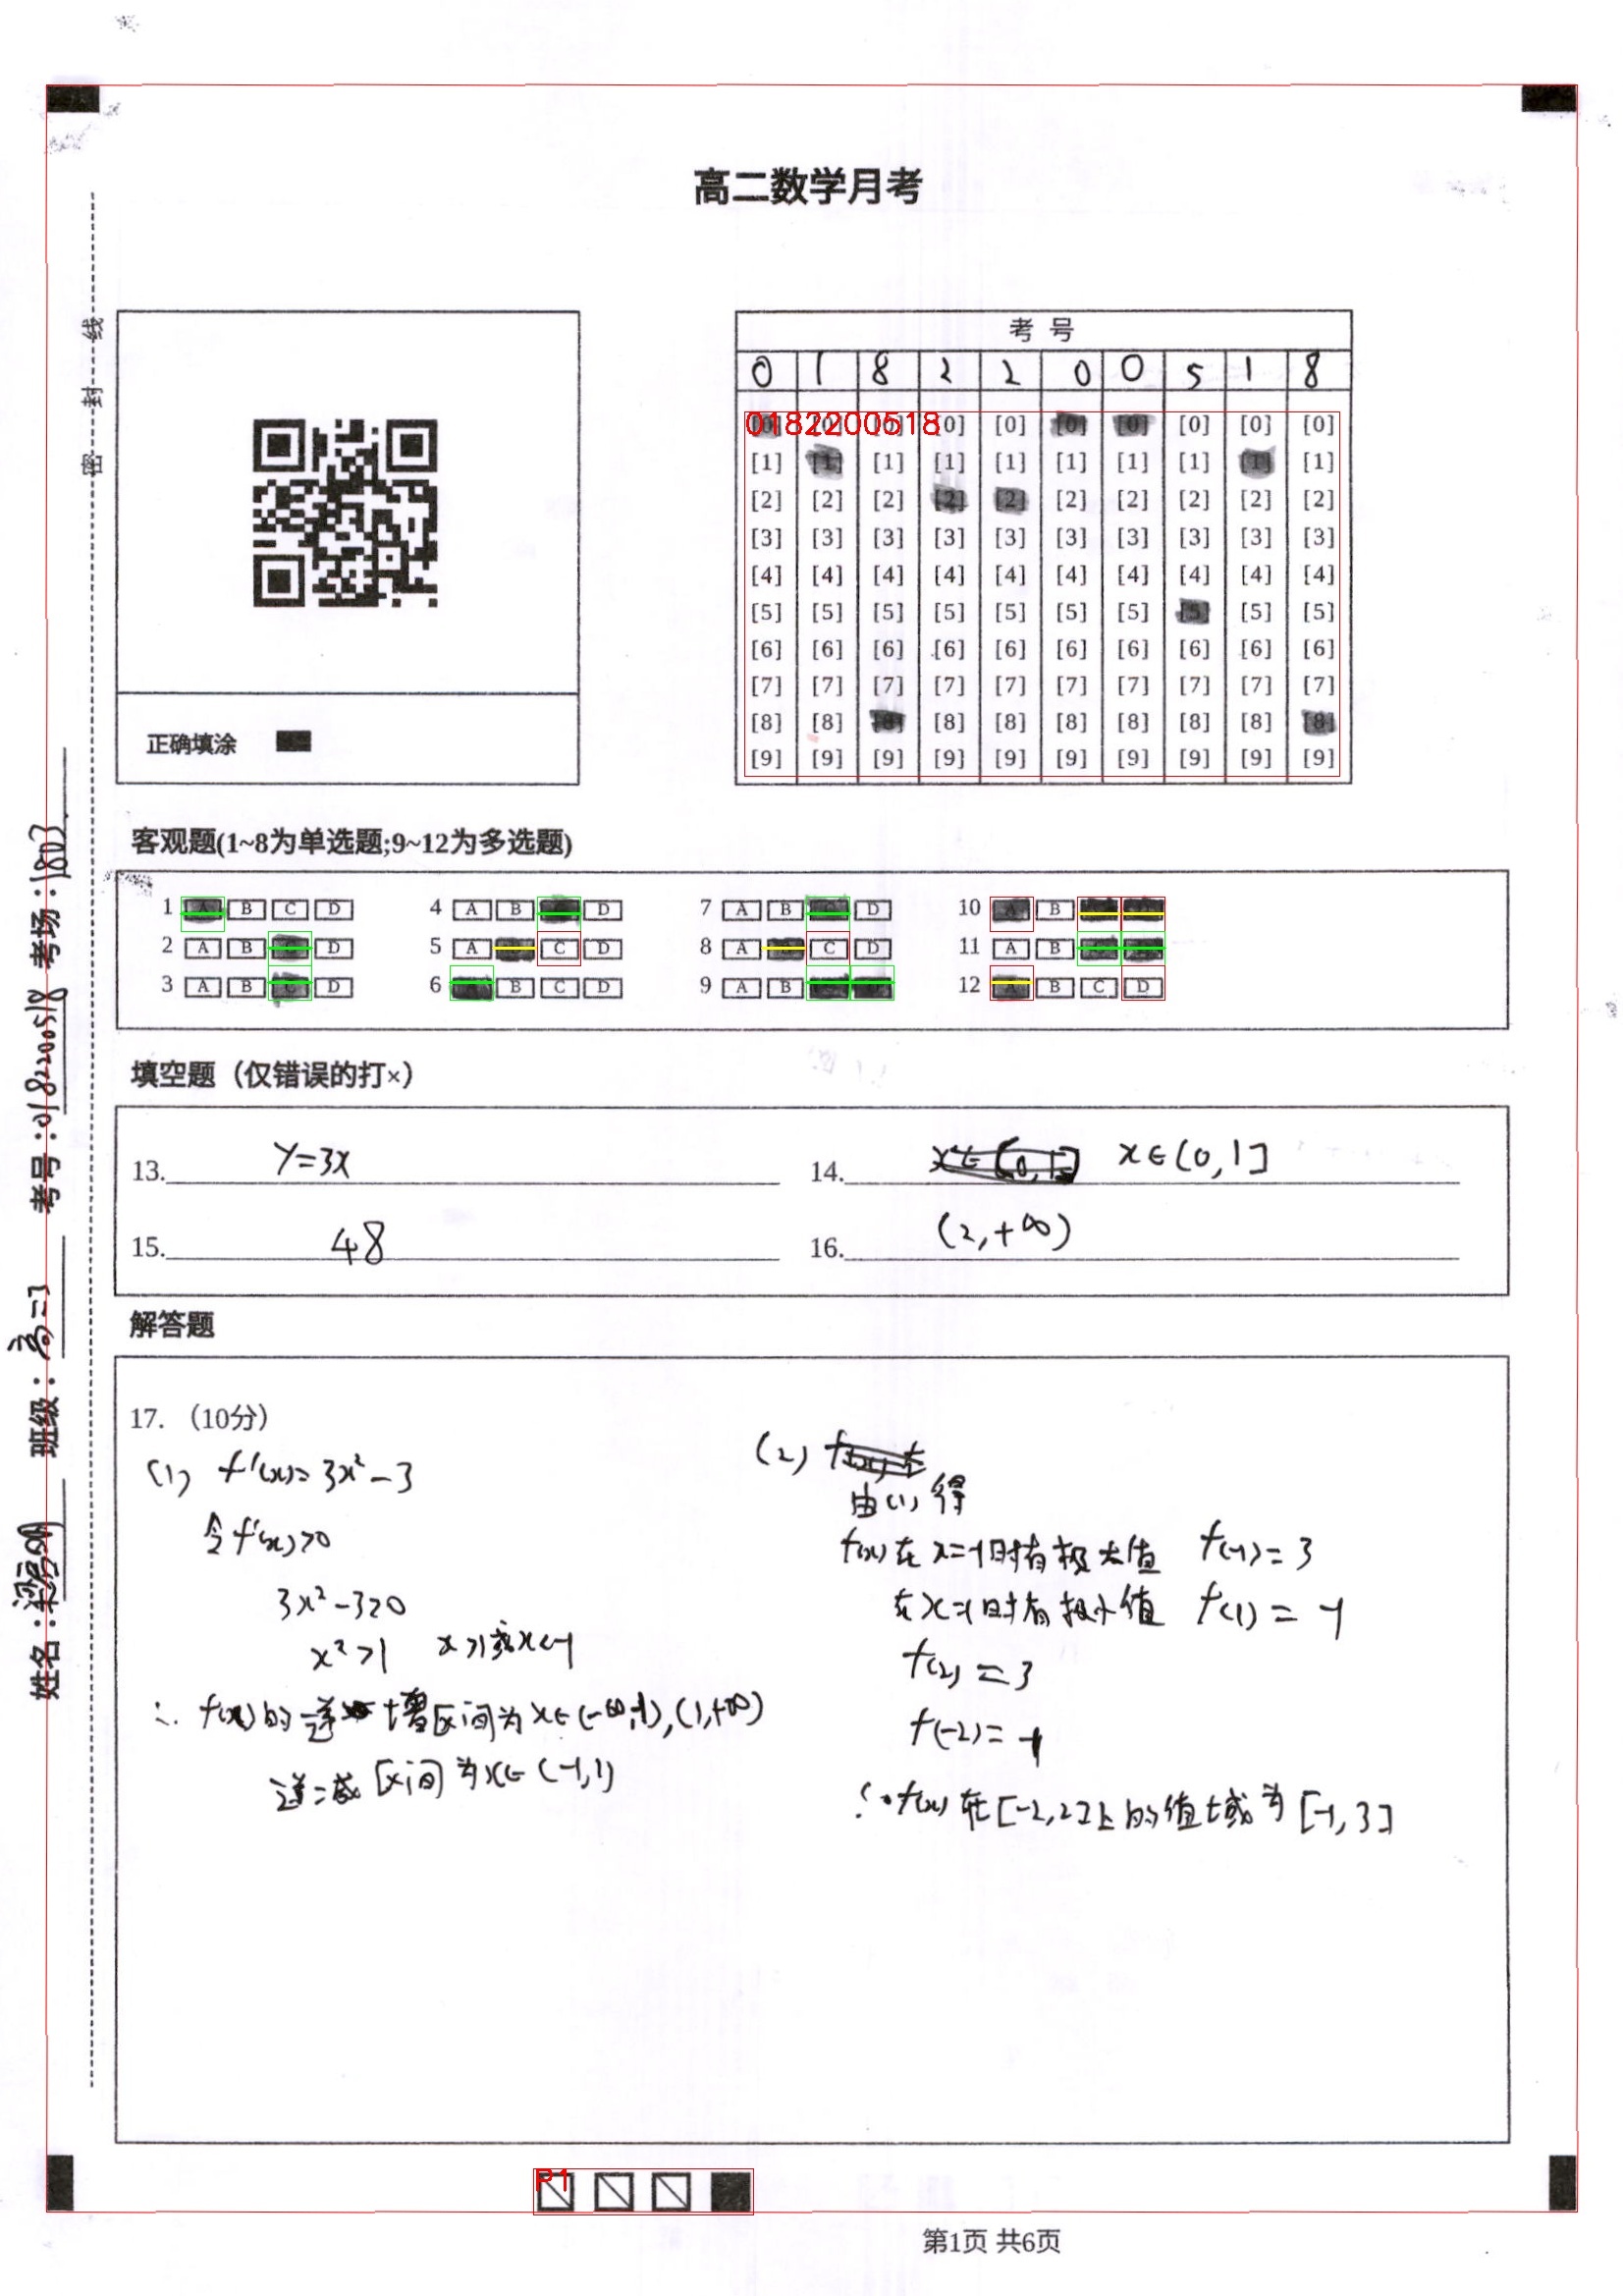 高二数学月考
密 封 线
姓名: 班级:高二3 考号:0182200518 考场:1803
考号
0 1 8 2 2 0 0 5 1 8
0182200518
[0] [0] [0] [0] [0] [0] [0] [0] [0] [0]
[1] [1] [1] [1] [1] [1] [1] [1] [1] [1]
[2] [2] [2] [2] [2] [2] [2] [2] [2] [2]
[3] [3] [3] [3] [3] [3] [3] [3] [3] [3]
[4] [4] [4] [4] [4] [4] [4] [4] [4] [4]
[5] [5] [5] [5] [5] [5] [5] [5] [5] [5]
[6] [6] [6] [6] [6] [6] [6] [6] [6] [6]
[7] [7] [7] [7] [7] [7] [7] [7] [7] [7]
[8] [8] [8] [8] [8] [8] [8] [8] [8] [8]
[9] [9] [9] [9] [9] [9] [9] [9] [9] [9]
正确填涂
客观题(1~8为单选题;9~12为多选题)
1 A B C D 4 A B C D 7 A B C D 10 A B C D
2 A B C D 5 A B C D 8 A B C D 11 A B C D
3 A B C D 6 A B C D 9 A B C D 12 A B C D
填空题（仅错误的打×）
13. y=3x 14. x∈(0,1]
15. 48 16. (2,+∞)
解答题
17.（10分）
(1) f'(x)=3x²-3
令f'(x)>0
3x²-3>0
x²>1 x>1或x<-1
∴ f(x)的递增区间为x∈(-∞,-1),(1,+∞)
递减区间为x∈(-1,1)
(2)
由(1)得
f(x)在x=-1时有极大值 f(-1)=3
在x=1时有极小值 f(1)=-1
f(2)=3
f(-2)=-1
∴f(x)在[-2,2]上的值域为[-1,3]
P1
第1页 共6页